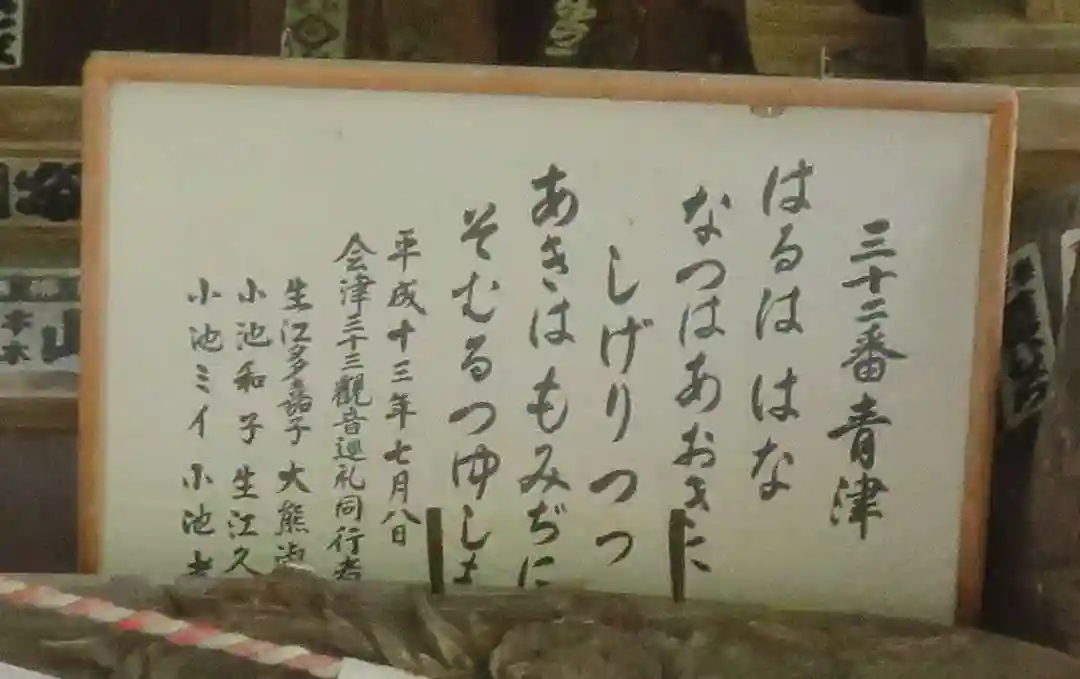 三十二番青津
はるは はな
なつはあおきに
しげりつつ
あきはもみぢに
そむるつゆしも
平成十三年七月八日
会津三十三觀音巡礼同行者
生江多嘉子 大熊
小池和子 生江久
小池ミイ 小池
山